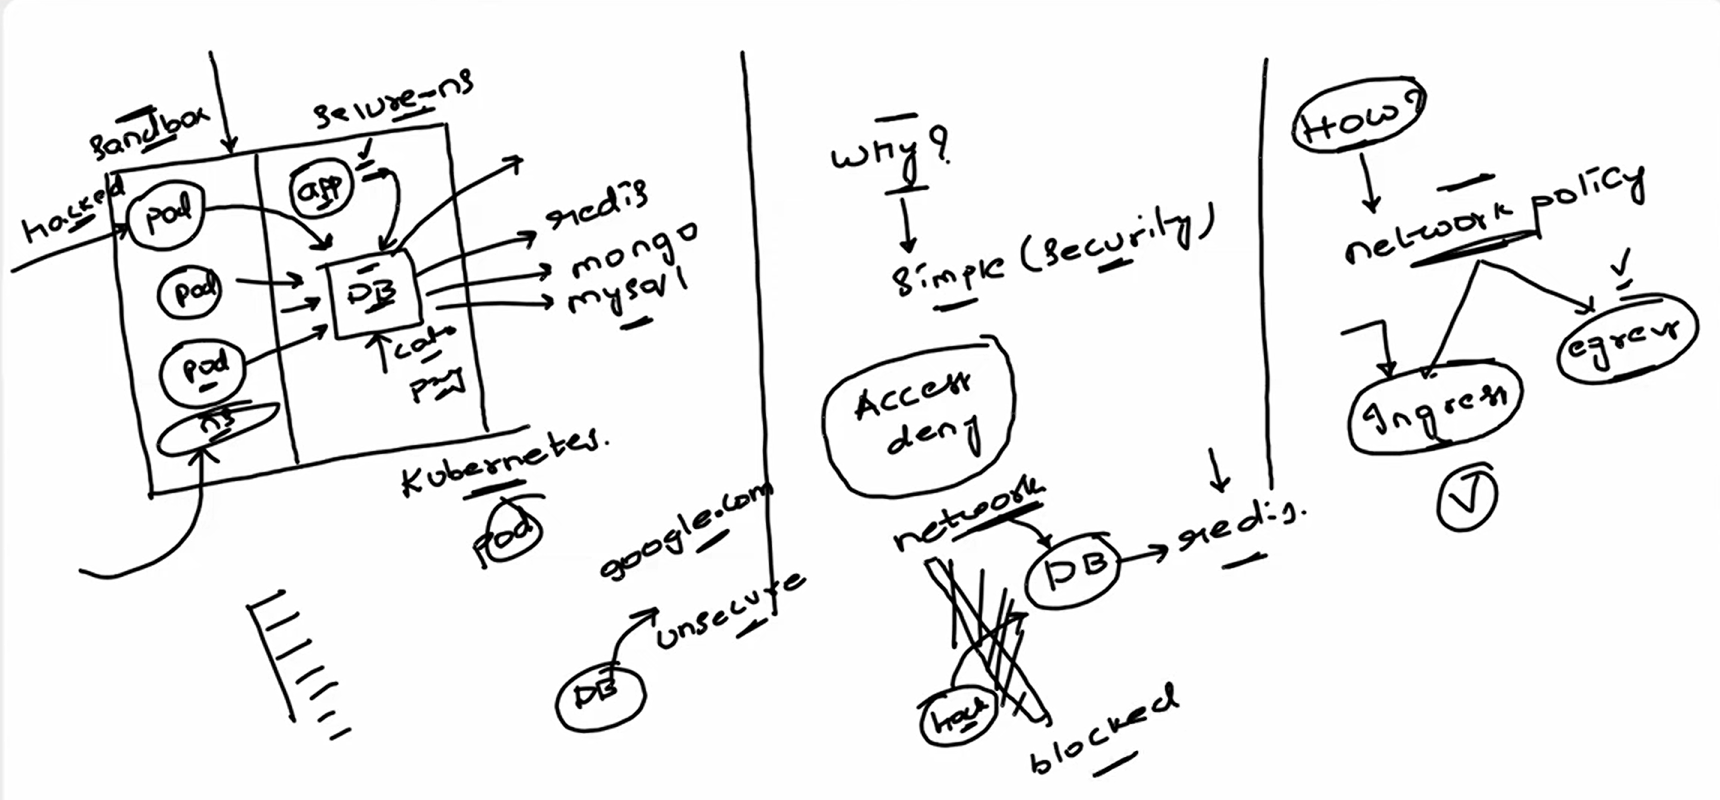 Sandbox
Secure-ns
hacked
pod
app
pod
DB
pod
ns
redis
mongo
mysql
Kubernetes.
pod
google.com
unsecure
DB
Why?
Simple (Security)
Access
deny
network
DB
redis.
hack
blocked
How?
network policy
Ingress
egress